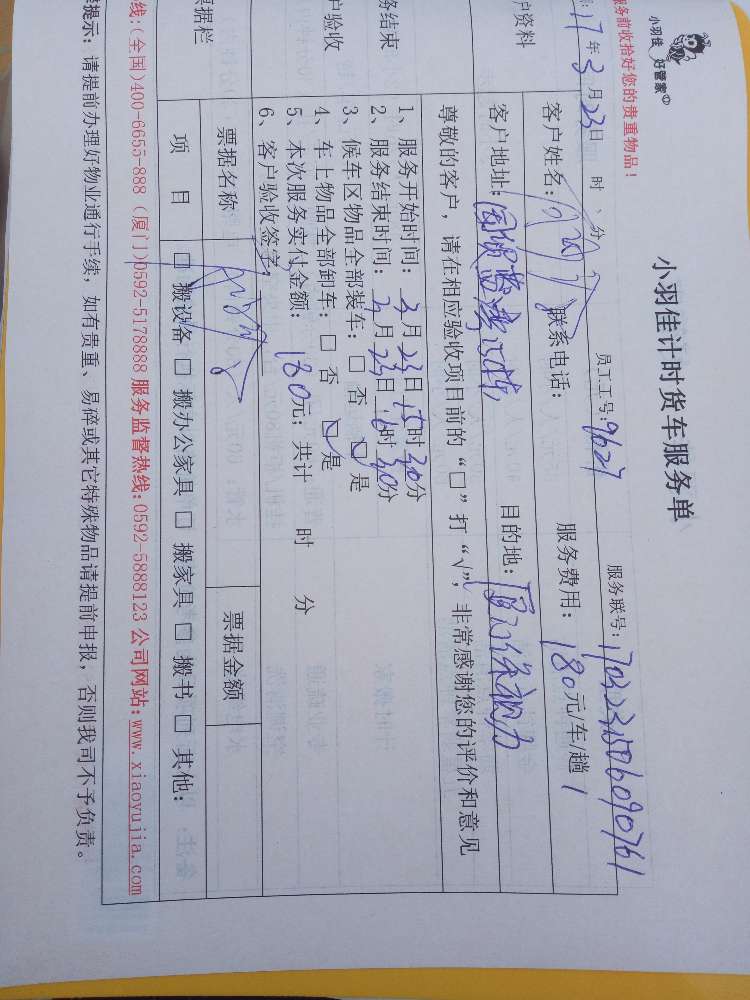 小羽佳 好管家
服务前收拾好您的贵重物品！
小羽佳计时货车服务单
17年3月23日 时、分 员工工号：9627 服务联号：1703231506090761
户资料
客户姓名： 联系电话： 服务费用：180元/车/趟 1
客户地址： 目的地：
尊敬的客户，请在相应验收项目前的“□”打“√”，非常感谢您的评价和意见
务结束
户验收
1、服务开始时间：3月23日15时30分
2、服务结束时间：3月23日16时30分
3、候车区物品全部装车：□ 否 ☑ 是
4、车上物品全部卸车：□ 否 ☑ 是
5、本次服务实付金额：180元；共计 时 分
6、客户验收签字：
票据栏
票据名称 票据金额
项 目 □ 搬设备 □ 搬办公家具 □ 搬家具 □ 搬书 □ 其他：
线：(全国)400-6655-888 (厦门)0592-5178888 服务监督热线：0592-5888123 公司网站：www.xiaoyujia.com
提示：请提前办理好物业通行手续，如有贵重、易碎或其它特殊物品请提前申报，否则我司不予负责。